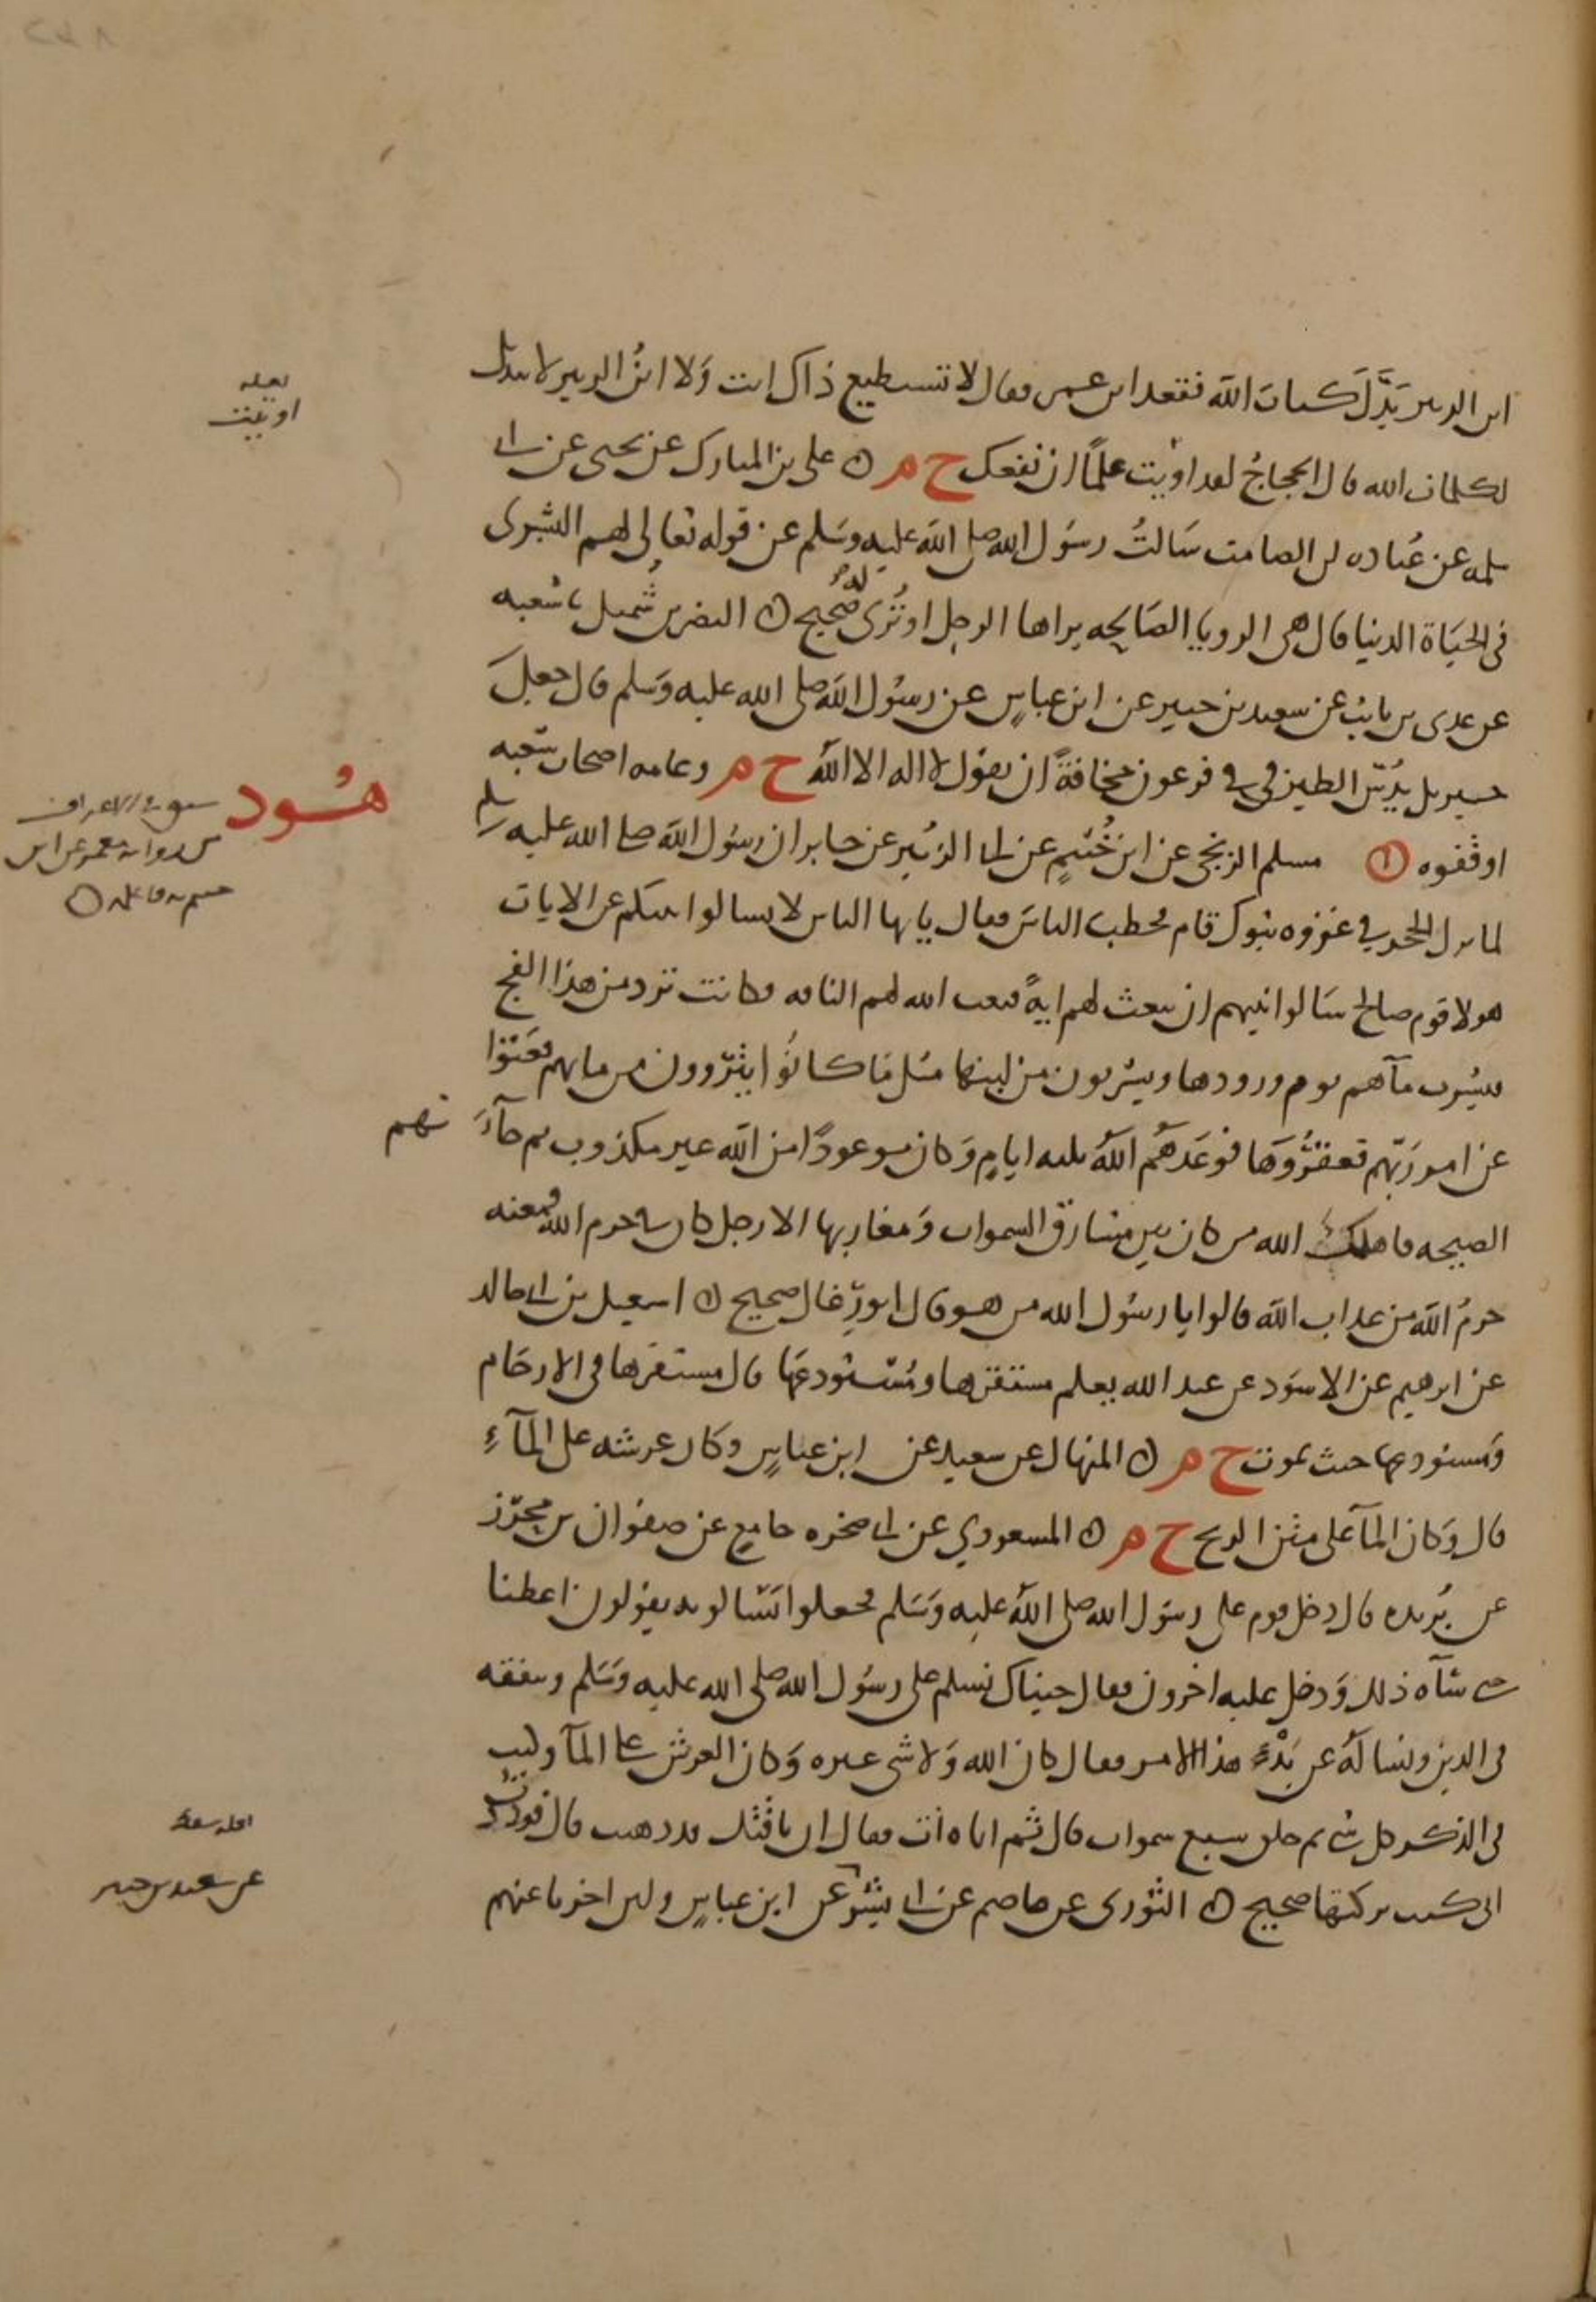 ابن الزبير بَدَّلَ كلمات الله فقعد ابن عمر فقال لا تستطيع ذاك انت وَلا ابنُ الزبير لا تبديل
لكلمات الله قال الحجاجُ لقد اوتيت علمًا ان نفعك خ م ٥ على بن المبارك عن يحيى عن ابى
سلمه عن عُباده بن الصامت سَالتُ رسَول الله صلى الله عليه وسَلم عن قوله تعالى لهم البشرى
فى الحيَاة الدنيا قال هى الرويا الصَالحه يراها الرجل او تُرى لهُ صحيح ٥ النضر بن شُميل نا شعبه
عن عدى بن ثابت عن سعيد بن جبير عن ابن عباسٍ عن رسُول الله صلى الله عليه وَسلم قال جعلَ
جبريل يَدُسّ الطين فى فى فرعون مخافةً ان يقول لا اله الا الله خ م وعامه اصحاب شعبه
اوقفوه ٥ مسلم الزنجى عن ابن خُثيمٍ عن ابى الزُبير عن جابر ان رسُول الله صلى الله عليه وسلم
هُود
لما نزل الحجر فى غزوه تبوك قام فخطب الناسَ فقال يايها الناس لا تسالوا نبيكم عن الايات
هولا قوم صالح سَالوا نبيهم ان يبعث لهم ايةً فبعث الله لهم الناقه فكانت ترد من هذا الفج
فتشرب مآهم يوم ورودها ويشربون من لبنها مثل مَا كانُوا يتروون من مايهم فعَتَوا
عن امر رَبّهم فعقرُوَها فوَعَدَهُم اللهُ ثلثه ايامٍ وَكان موعودًا من الله غير مكذوب ثم جآءَتهم
الصيحه فاهلك الله من كان بين مشارق السموات وَمغاربها الا رجل كان فى حرم الله فمنعه
حرمُ الله من عذاب الله قالوا يا رسُول الله من هو قال ابو رِغال صحيح ٥ اسمعيل بن ابى خالد
عن ابرهيم عن الاسوَد عن عبد الله يعلم مستقرها ومُستودعَها قال مستقرها فى الارحَام
وَمستودعها حيث تموت خ م ٥ المنهال عن سعيد عن ابن عباسٍ وكان عرشه على المآءِ
قال وَكان المآ على متن الريح خ م ٥ المسعودي عن ابى صخره جامعٍ عن صفوان بن محرز
عن بُريده قال دخل قوم على رسَول الله صلى اللهُ عليه وَسَلم فجعلوا يَسَالونه يقولون اعطنا
حتى سَآه ذلك وَدخل عليه اخرون فقال جيناك نسلم على رسُول الله صلى الله عليه وَسَلم ونتفقه
فى الدين ونسالهُ عن بَدْءِ هذا الامر فقال كان الله وَلا شى غيره وَكان العرش على المآ وكتب
فى الذكر كل شى ثم خلق سبع سموات قال ثم اتاه اتٍ فقال ان ناقتك قد ذهبت قال فوددتُ
انى كنت تركتها صحيح ٥ الثورى عن عاصم عن ابى عن ابن عباسٍ ولين اخرنا عنهم
لعله
اوتيت
سورة الاعراف
من روايه معمر عن ابن
عن سعيد بن جبير